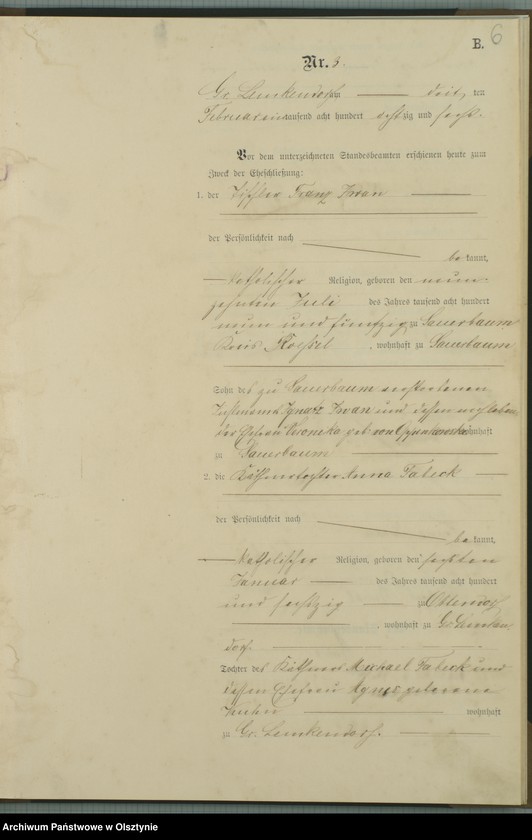 B. 6
Nr. 3.
Gr. Lemkendorf am — drei ten
Februar eintausend acht hundert achtzig und sechs.
Vor dem unterzeichneten Standesbeamten erschienen heute zum
Zweck der Eheschließung:
1. der Tischler Franz Iwan —
der Persönlichkeit nach
be kannt,
— katholischer Religion, geboren den neun-
zehnten Juli des Jahres tausend acht hundert
neun und fünfzig zu Sauerbaum
Kreis Roessel, wohnhaft zu Sauerbaum
Sohn des zu Sauerbaum verstorbenen
Ignatz Iwan und dessen
Ehefrau geb. von wohnhaft
zu Sauerbaum —
2. die Käthnertochter Anna Fabeck —
der Persönlichkeit nach
be kannt,
— katholischer Religion, geboren den sechsten
Januar — des Jahres tausend acht hundert
und sechszig — zu Ottendorf
—, wohnhaft zu Gr. Lemken-
dorf. —
Tochter des Käthners Michael Fabeck und
dessen Ehefrau Agnes geborene
— wohnhaft
zu Gr. Lemkendorf. —
Archiwum Państwowe w Olsztynie